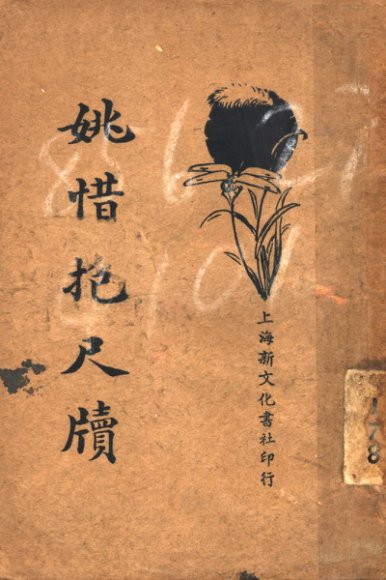 姚惜抱尺牘
上海新文化書社印行
178